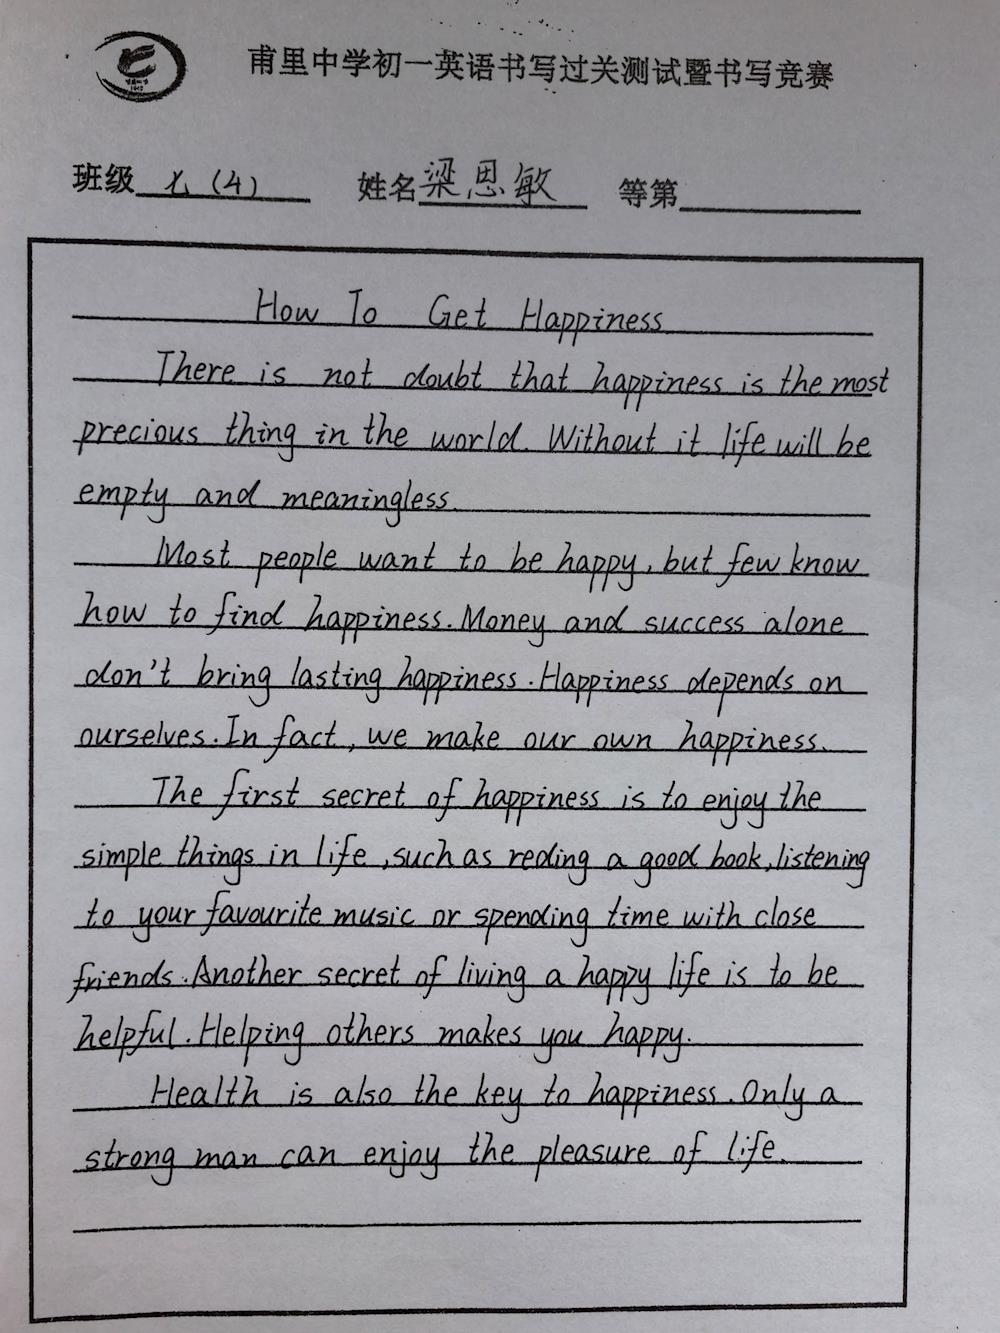 甫里中学初一英语书写过关测试暨书写竞赛
班级 七（4） 姓名 梁恩敏 等第
How To Get Happiness
There is not doubt that happiness is the most
precious thing in the world. Without it life will be
empty and meaningless.
Most people want to be happy, but few know
how to find happiness. Money and success alone
don't bring lasting happiness. Happiness depends on
ourselves. In fact, we make our own happiness.
The first secret of happiness is to enjoy the
simple things in life, such as reding a good book, listening
to your favourite music or spending time with close
friends. Another secret of living a happy life is to be
helpful. Helping others makes you happy.
Health is also the key to happiness. Only a
strong man can enjoy the pleasure of life.